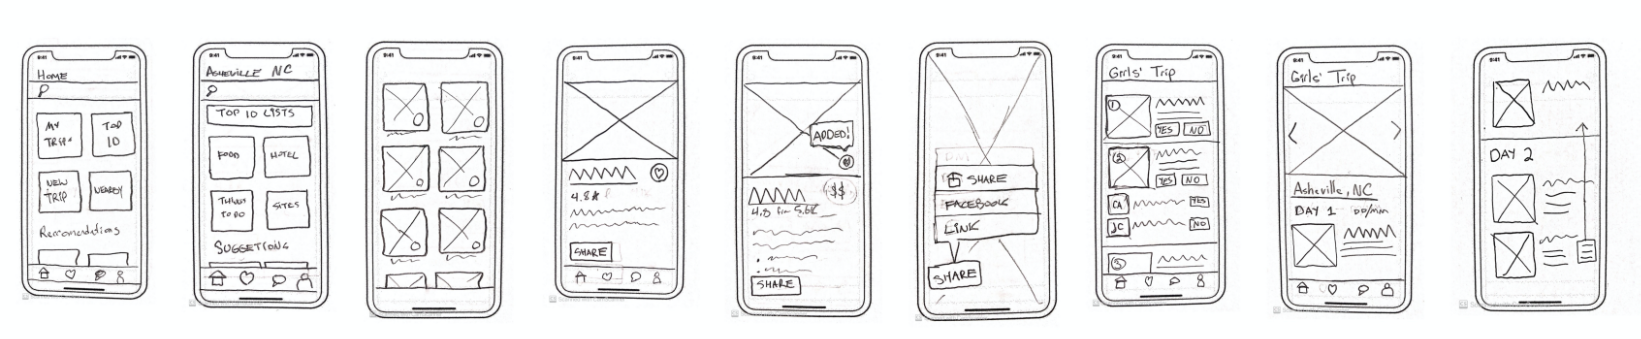 9:41
HOME
MY
TRIPS
TOP
10
NEW
TRIP
NEARBY
Recomendations
9:41
ASHEVILLE NC
TOP 10 LISTS
FOOD
HOTEL
THINGS
TO DO
SITES
SUGGESTIONS
9:41
9:41
4.8★
SHARE
9:41
ADDED!
$$
SHARE
9:41
SHARE
FACEBOOK
LINK
SHARE
9:41
Girls' Trip
1
YES NO
2
YES NO
CA YES
JC NO
3
9:41
Girls' Trip
< >
Asheville, NC
DAY 1
9:41
DAY 2